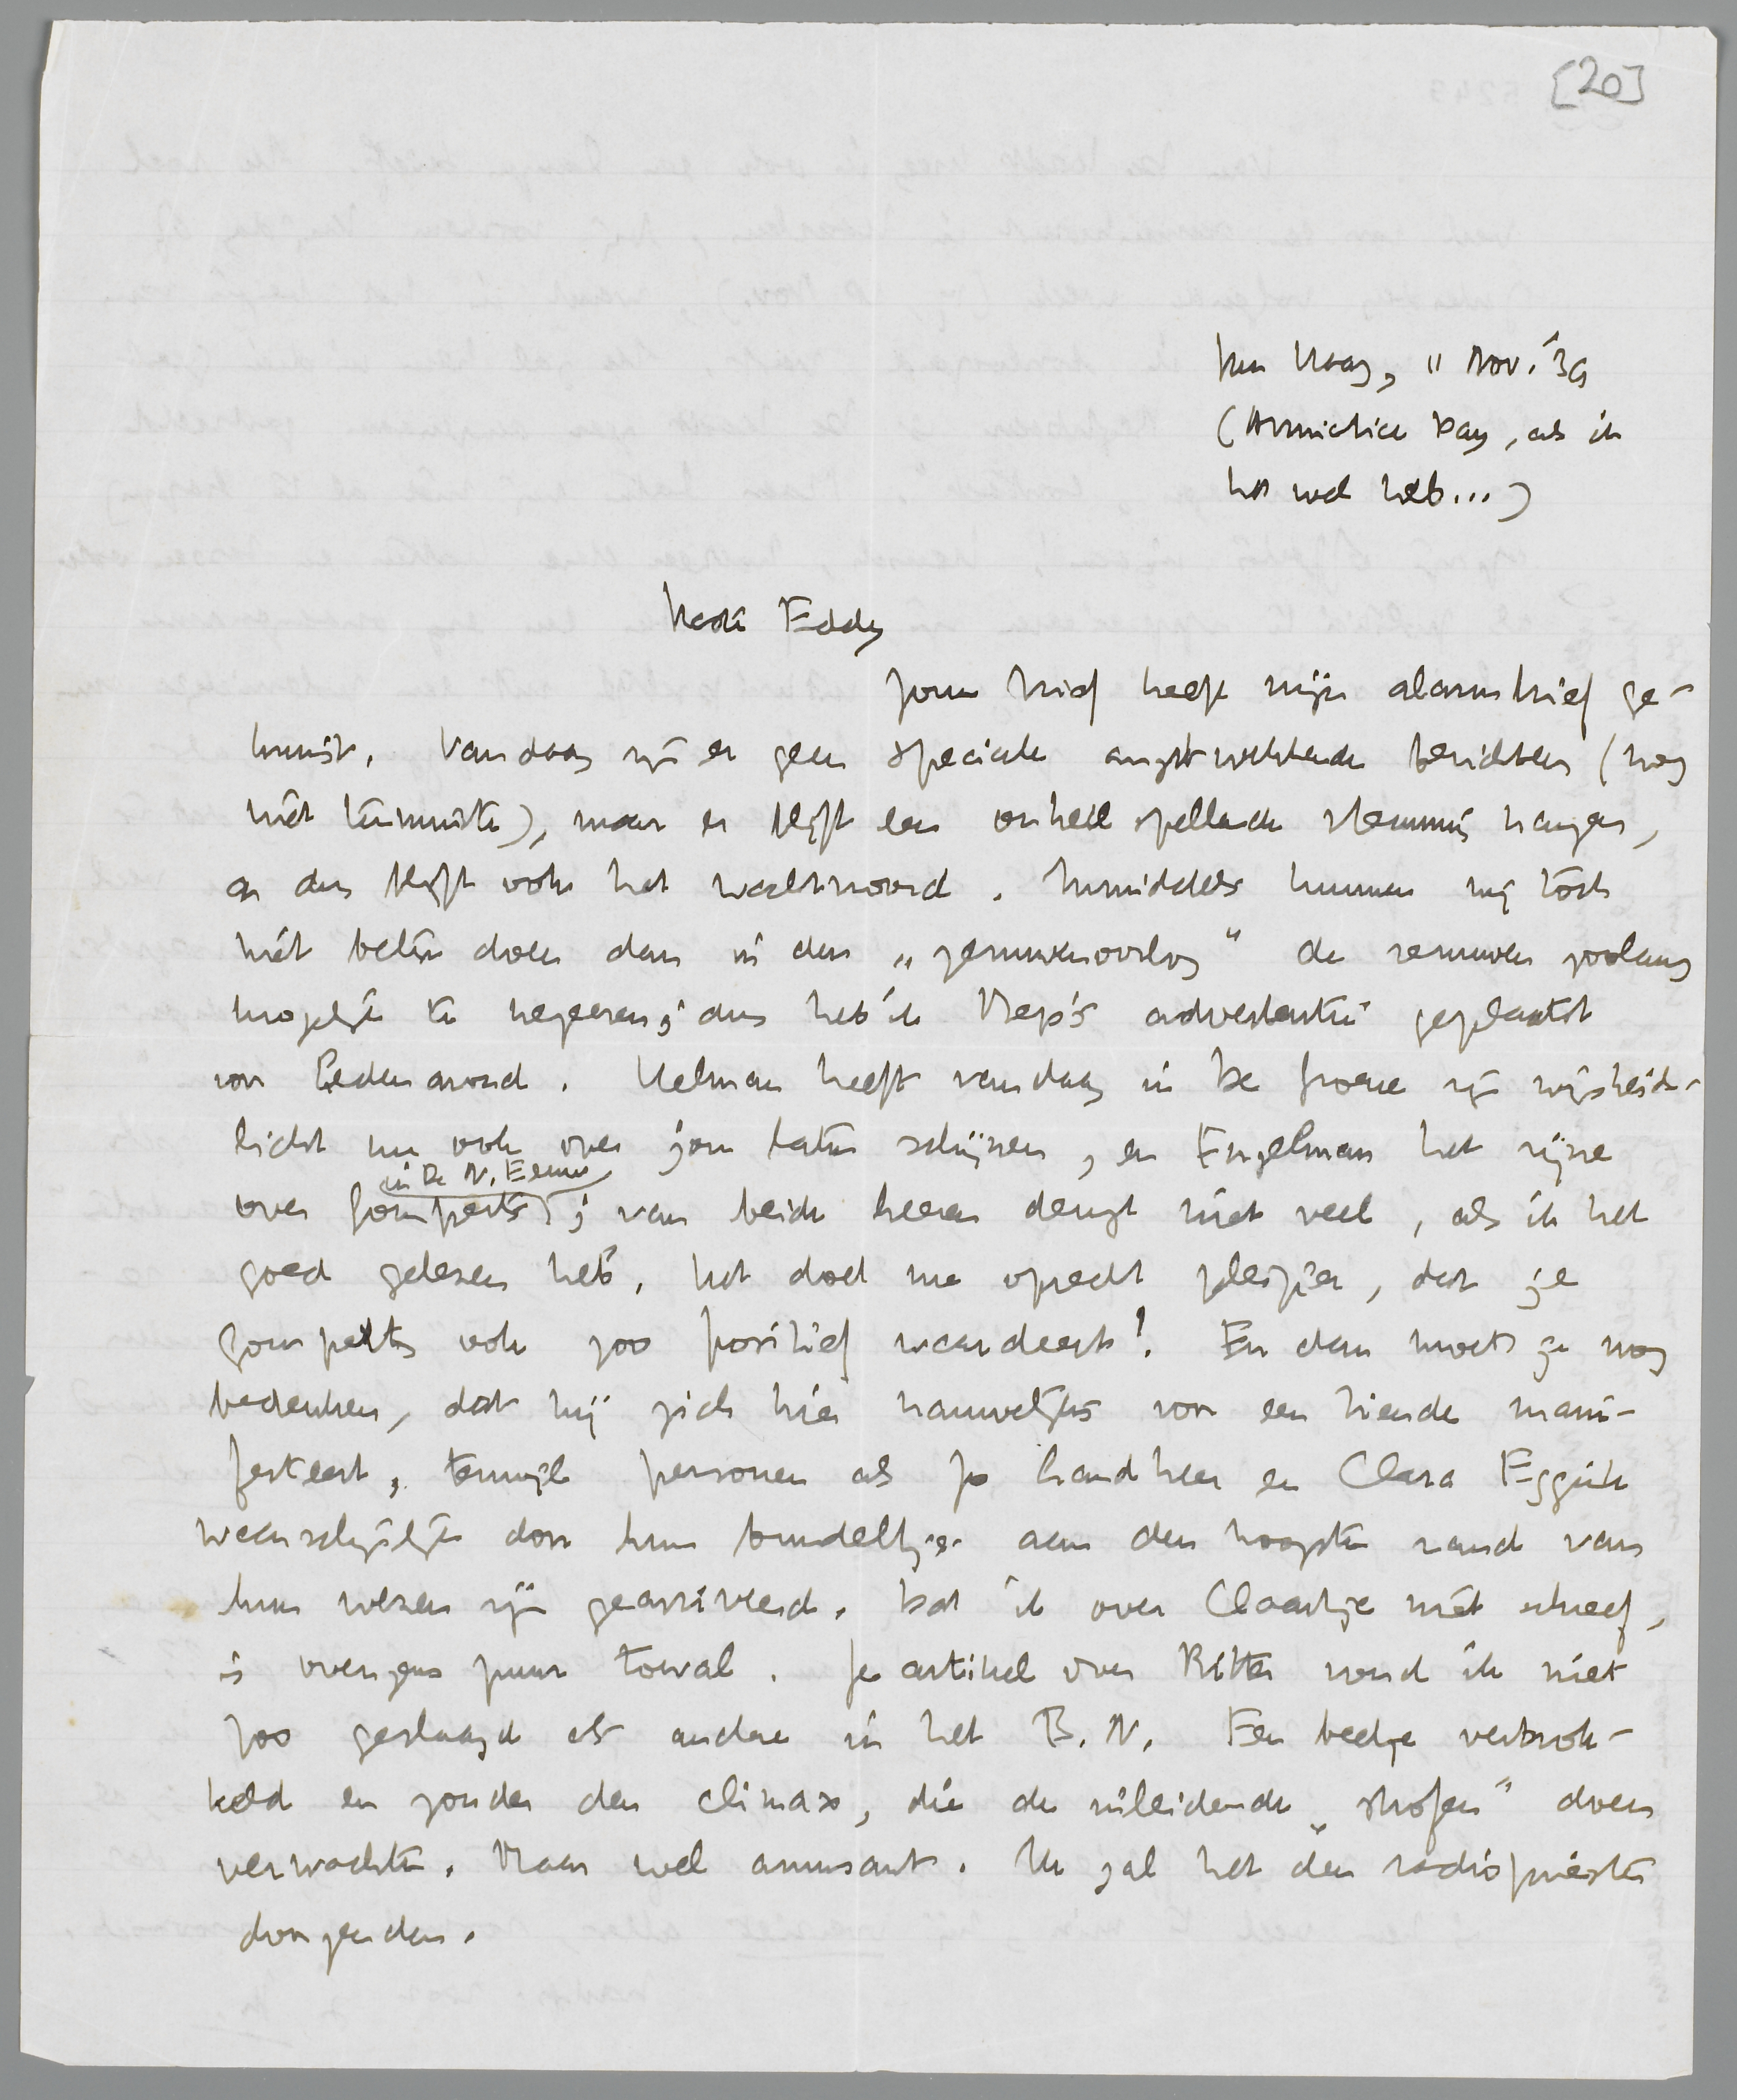 [20]
Den Haag, 11 Nov. '39
(Armistice Day, als ik
het wel heb...)
Beste Eddy
Jouw brief heeft mijn alarmbrief ge-
kruist. Vandaag zijn er geen speciale angstwekkende berichten (nog
niet tenminste), maar er blijft een onheilspellende stemming hangen,
en dus blijft ook het wachtwoord. Inmiddels kunnen wij toch
niet beter doen dan in den „zenuwenoorlog" de zenuwen zoolang
mogelijk te negeeren; dus heb ik Bep's advertentie geplaatst
von hedenavond. Helman heeft vandaag in De Groene zijn wijsheids-
licht nu ook over jou laten schijnen, en Engelman het zijne
in De N. Eeuw
over Gomperts; van beide heeren deugt niet veel, als ik het
goed gelezen heb. Het doet me oprecht plezier, dat je
Gomperts ook zoo positief waardeert! En dan moet je nog
bedenken, dat hij zich hier nauwelijks voor een tiende mani-
festeert, terwijl personen als Jo Landheer en Clara Eggink
waarschijnlijk door hun bundeltjes aan den hoogsten rand van
hun wezen zijn gearriveerd. Dat ik over Claartje niet schreef,
is overigens puur toeval. Je artikel over Ritter vond ik niet
zoo geslaagd als andere in het B.N. Een beetje verbrok-
keld en zonder den climax, die de inleidende „strofen" doen
verwachten. Maar wel amusant. Ik zal het den radiopriester
doorzenden.